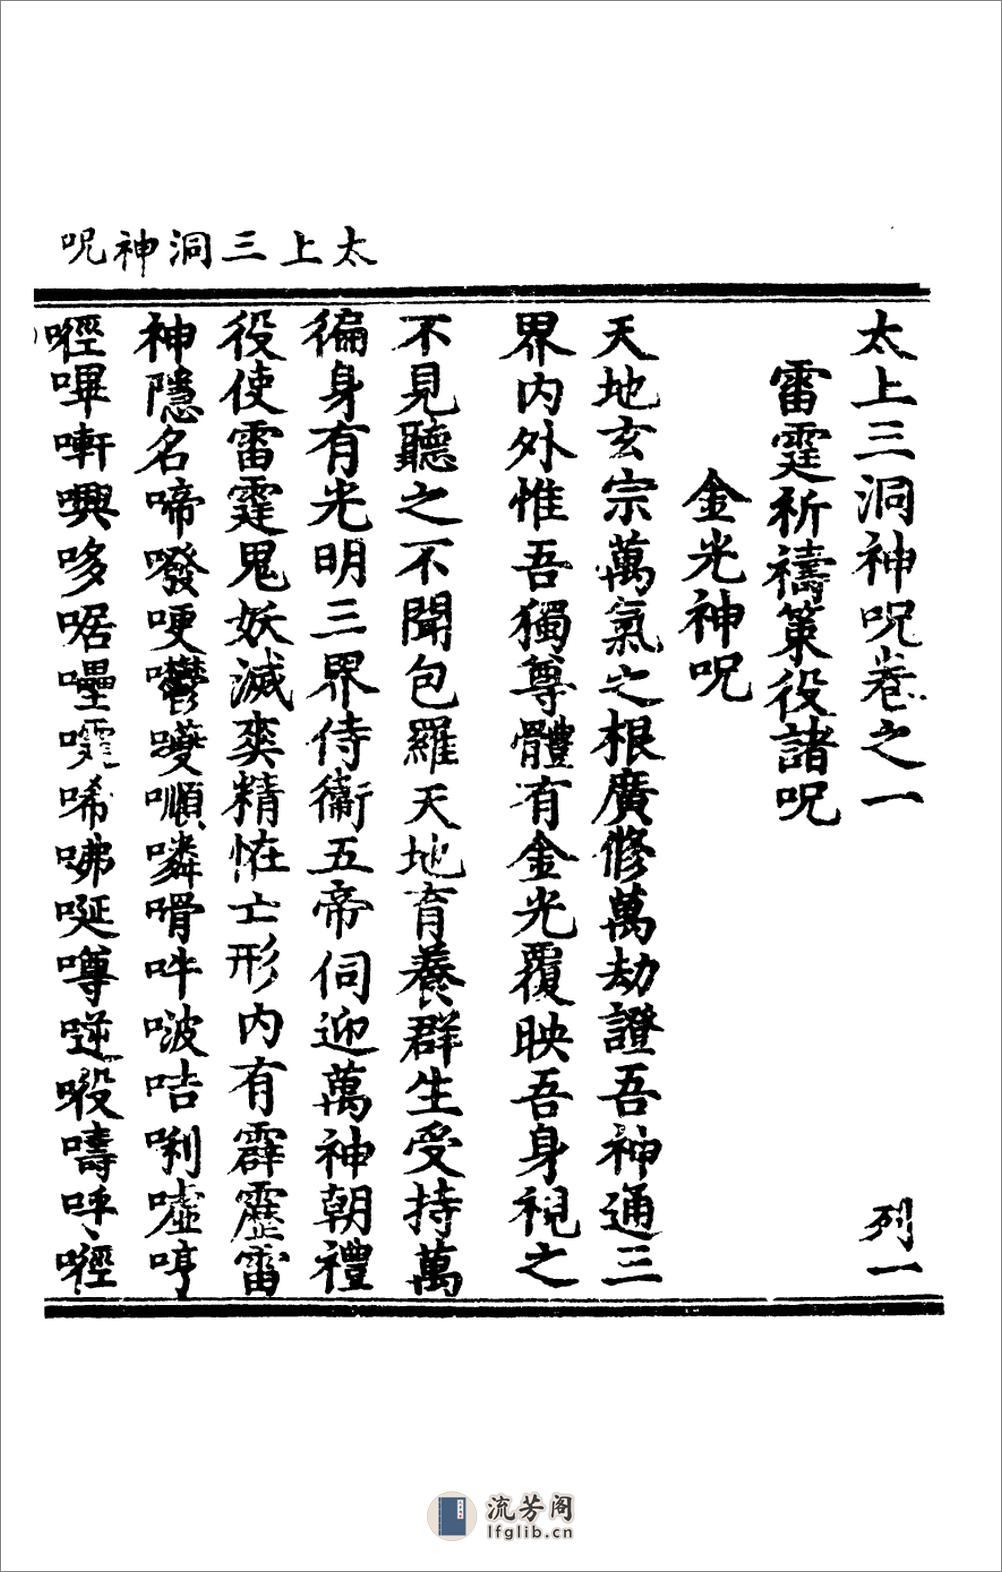 太上三洞神呪
太上三洞神呪卷之一　列一
雷霆祈禱策役諸呪
金光神呪
天地玄宗萬氣之根廣修萬劫證吾神通三
界内外惟吾獨尊體有金光覆映吾身視之
不見聽之不聞包羅天地育養群生受持萬
徧身有光明三界侍衞五帝伺迎萬神朝禮
役使雷霆鬼妖滅喪精恠亡形内有霹靂雷
神隱名啼嘚哽嚬順嘚嘚吽啵咭唎嘘哼
嘚嗶㗔嘚哆啹唏咈唌噂嘚嘚嚋呼嘚
流芳阁
lfglib.cn